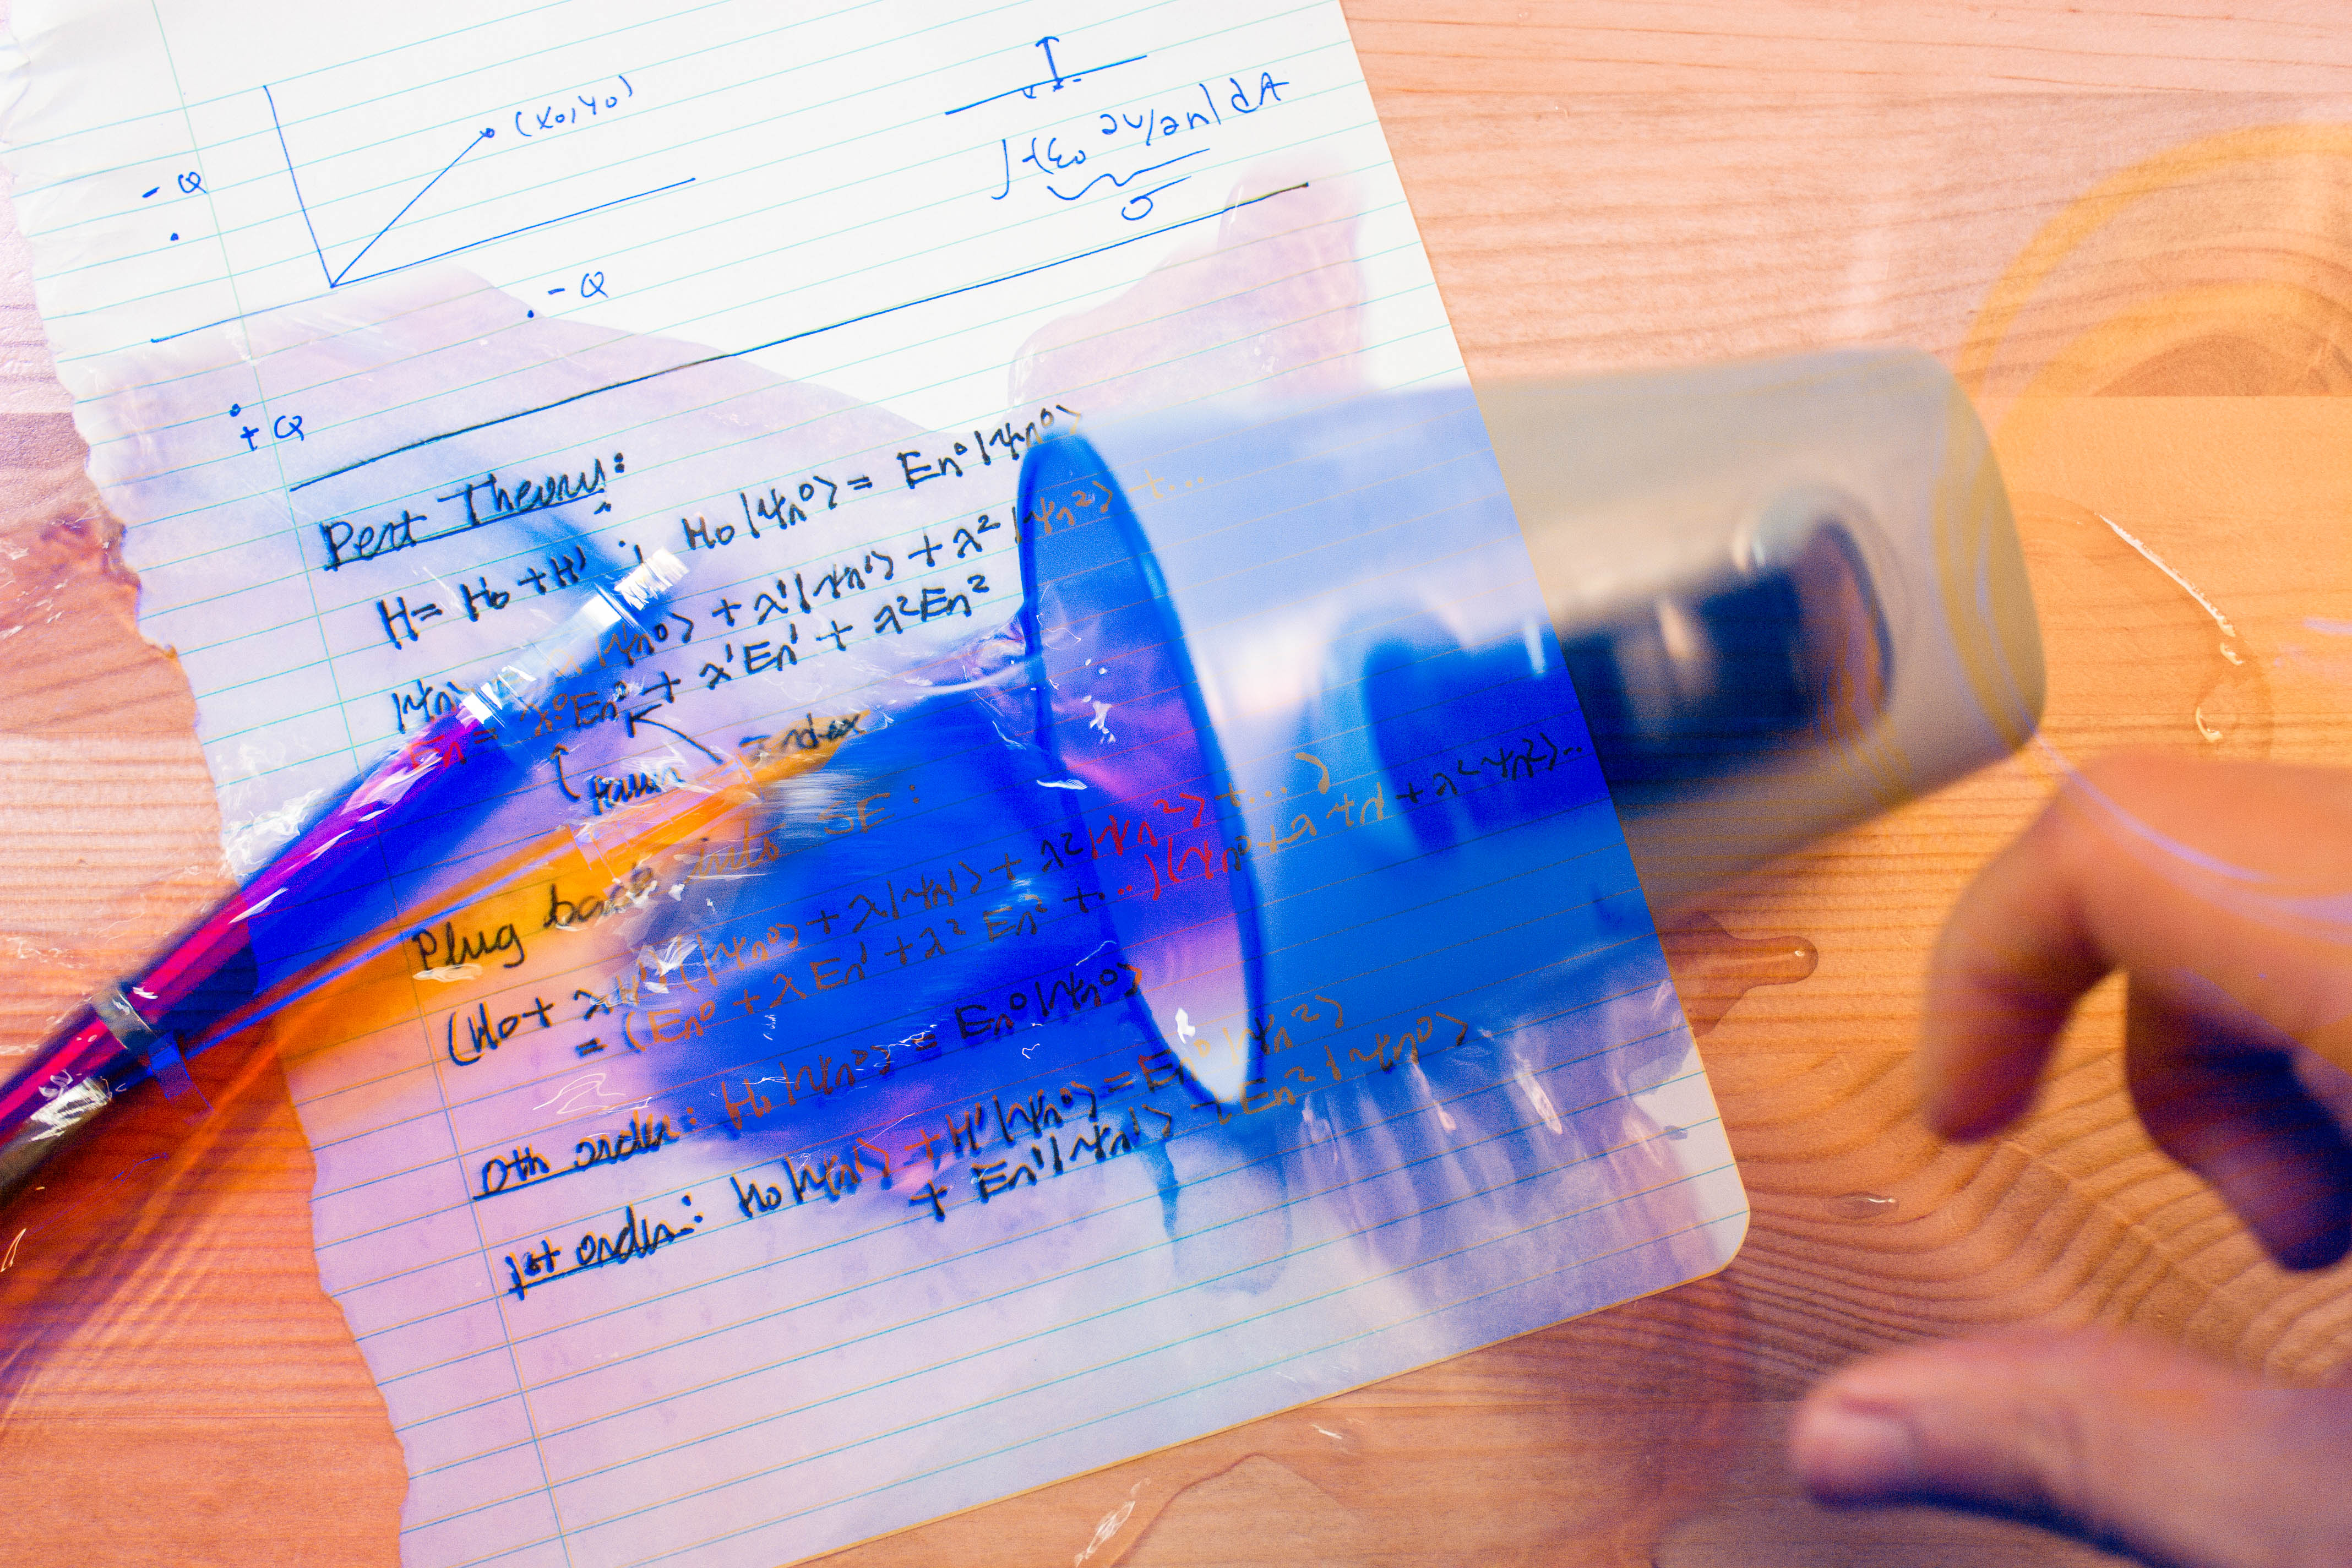 (x₀, y₀)
- Q
∫ -(ε₀ ∂V/∂n) dA
σ
- Q
+ Q
Pert Theory:
H = H₀ + H' ; H₀ |ψₙ⁰⟩ = Eₙ⁰ |ψₙ⁰⟩
|ψₙ⟩ |ψₙ⁰⟩ + λ' |ψₙ'⟩ + λ² |ψₙ²⟩ + ...
Eₙ = λ⁰Eₙ⁰ + λ'Eₙ' + λ²Eₙ²
Index
Plug back into SE:
(H₀ + λH')(|ψₙ⁰⟩ + λ|ψₙ'⟩ + λ²|ψₙ²⟩ + ...)
= (Eₙ⁰ + λEₙ' + λ²Eₙ² + ..)(ψₙ⁰ + λ²ψₙ²⟩...
0th order: H₀|ψₙ⁰⟩ = Eₙ⁰|ψₙ⁰⟩
1st order: H₀|ψₙ'⟩ + H'|ψₙ⁰⟩ = Eₙ⁰|ψₙ²⟩
+ Eₙ'|ψₙ'⟩ + Eₙ²|ψₙ⁰⟩